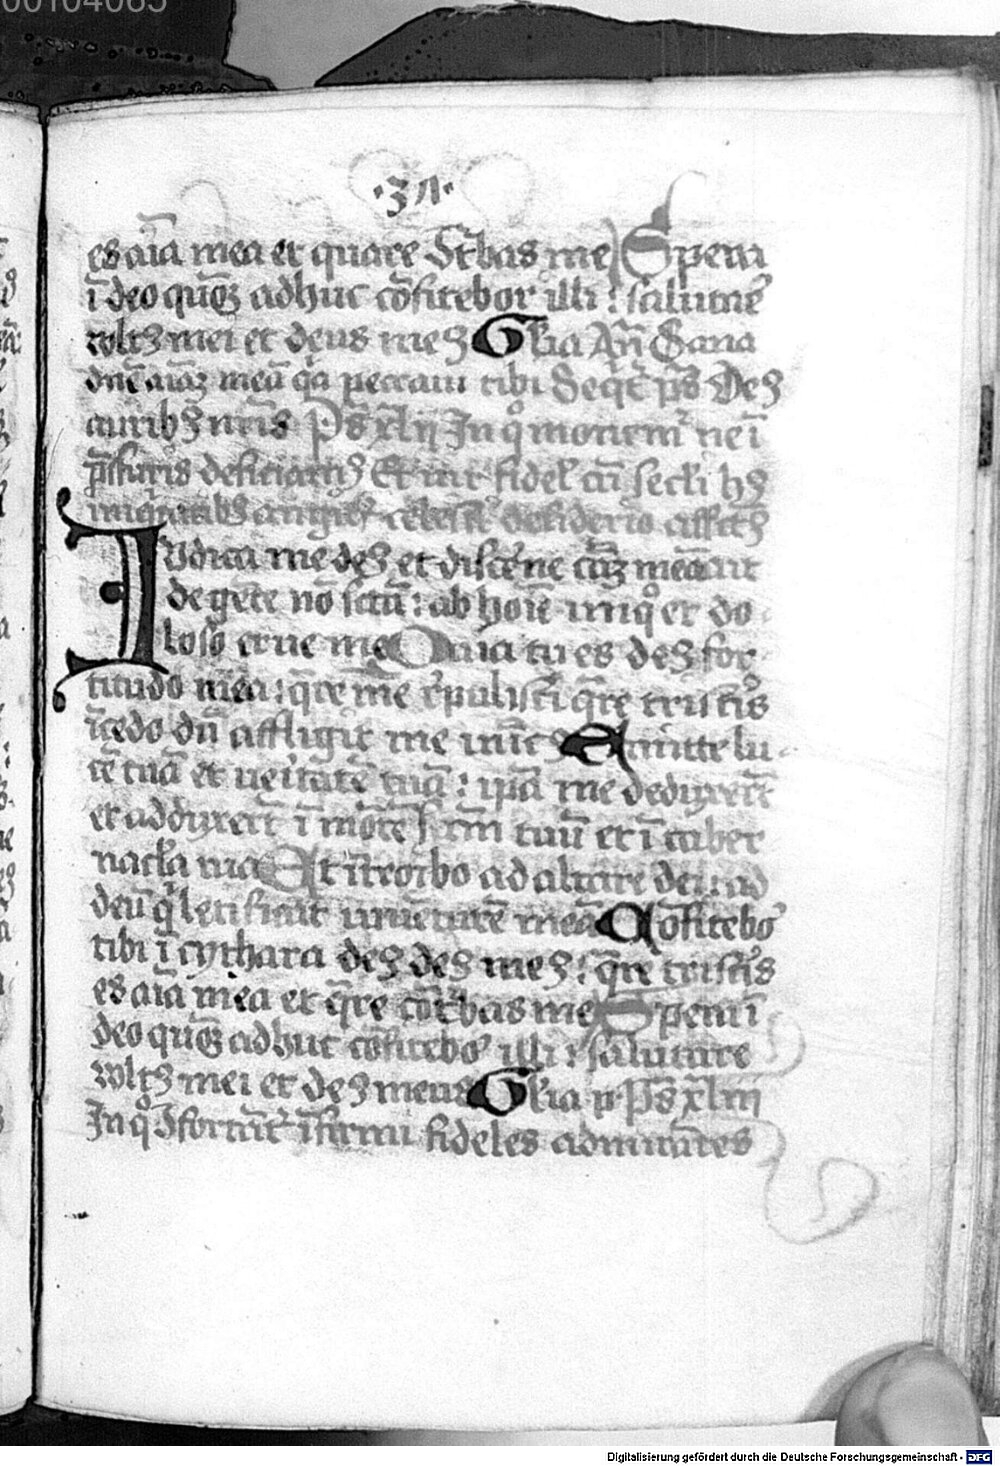 00104065
·31·
es aīa mea et quare ↄt̄bas me Spera
ī deo quoꝫ adhuc cōfitebor illi : salutare
vltꝫ mei et deus meꝫ Glīa An̄ Sana
dn̄e aīaꝫ meā qa peccaui tibi Seqt̄ ps̄ Deꝫ
auribꝫ nr̄is Ps̄ xlij In qͦ monemr ne ī
deficiamꝫ Et fidel cū
desiderio
Iudica me deꝫ et discerne cāꝫ meā
de gēte nō sctā : ab hoīe iniqͦ et do
loso erue me Quia tu es deꝫ for
titudo mea : qre me repulisti qre tristis
īcedo dū affligit me inīcꝫ Emitte lu
cē tuā et ueritatē tuā : ipā me deduxerūt
et adduxerūt ī mōtē sctm̄ tuū et ī taber
nacła tua Et ītroibo ad altare dei : ad
deū qi letificat iuuētutē meā Cōfitebor
tibi ī cythara deꝫ deꝫ meꝫ : qre tristis
es aīa mea et qre ↄt̄bas me Spera ī
deo quoꝫ adhuc cōfitebor illi : salutare
vltꝫ mei et deꝫ meus Glīa Ps̄ xliij
In qͦ īfirmi fideles
Digitalisierung gefördert durch die Deutsche Forschungsgemeinschaft - DFG